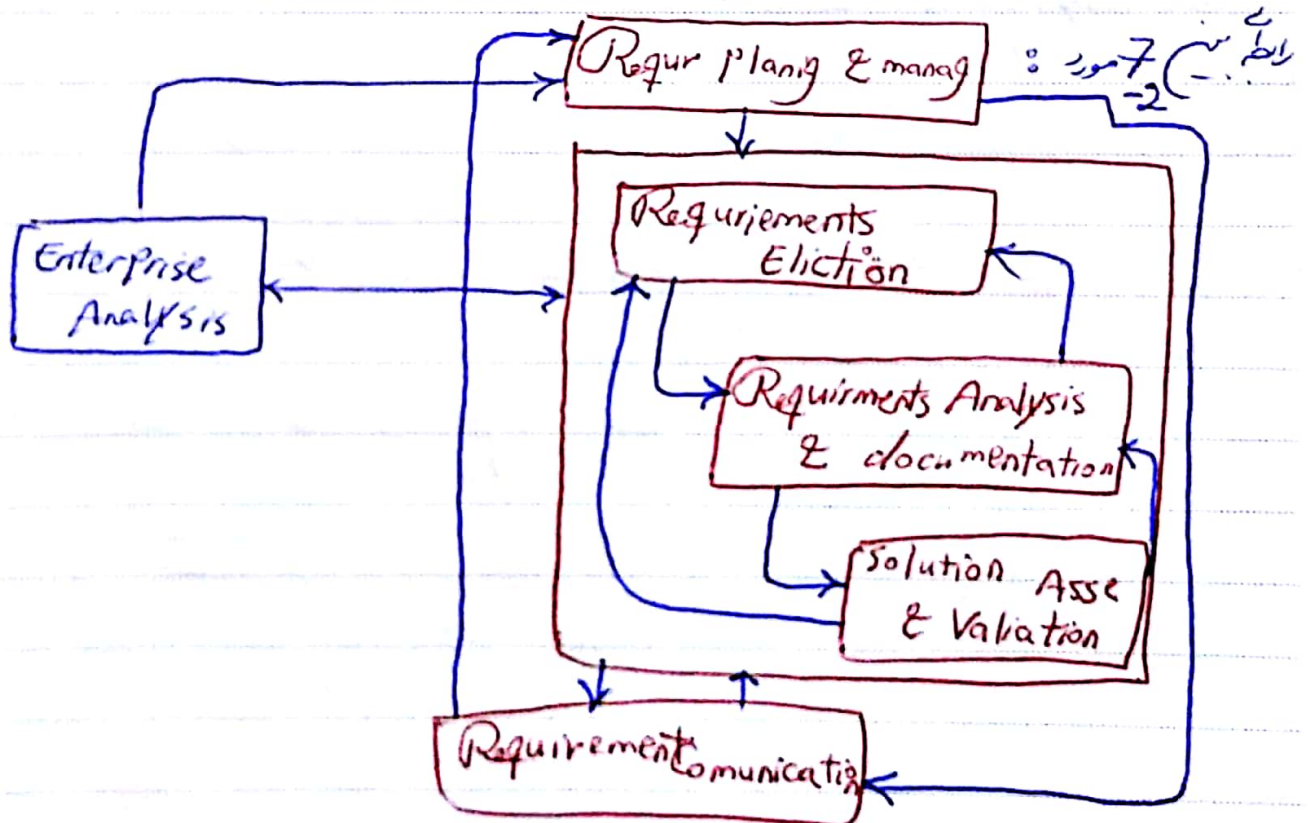 Requr planig & manag
رابطه بین 7 مورد :
-2
Enterprise
Analysis
Requriements
Eliction
Requirments Analysis
& documentation
Solution Asse
& Valiation
Requirements Comunication